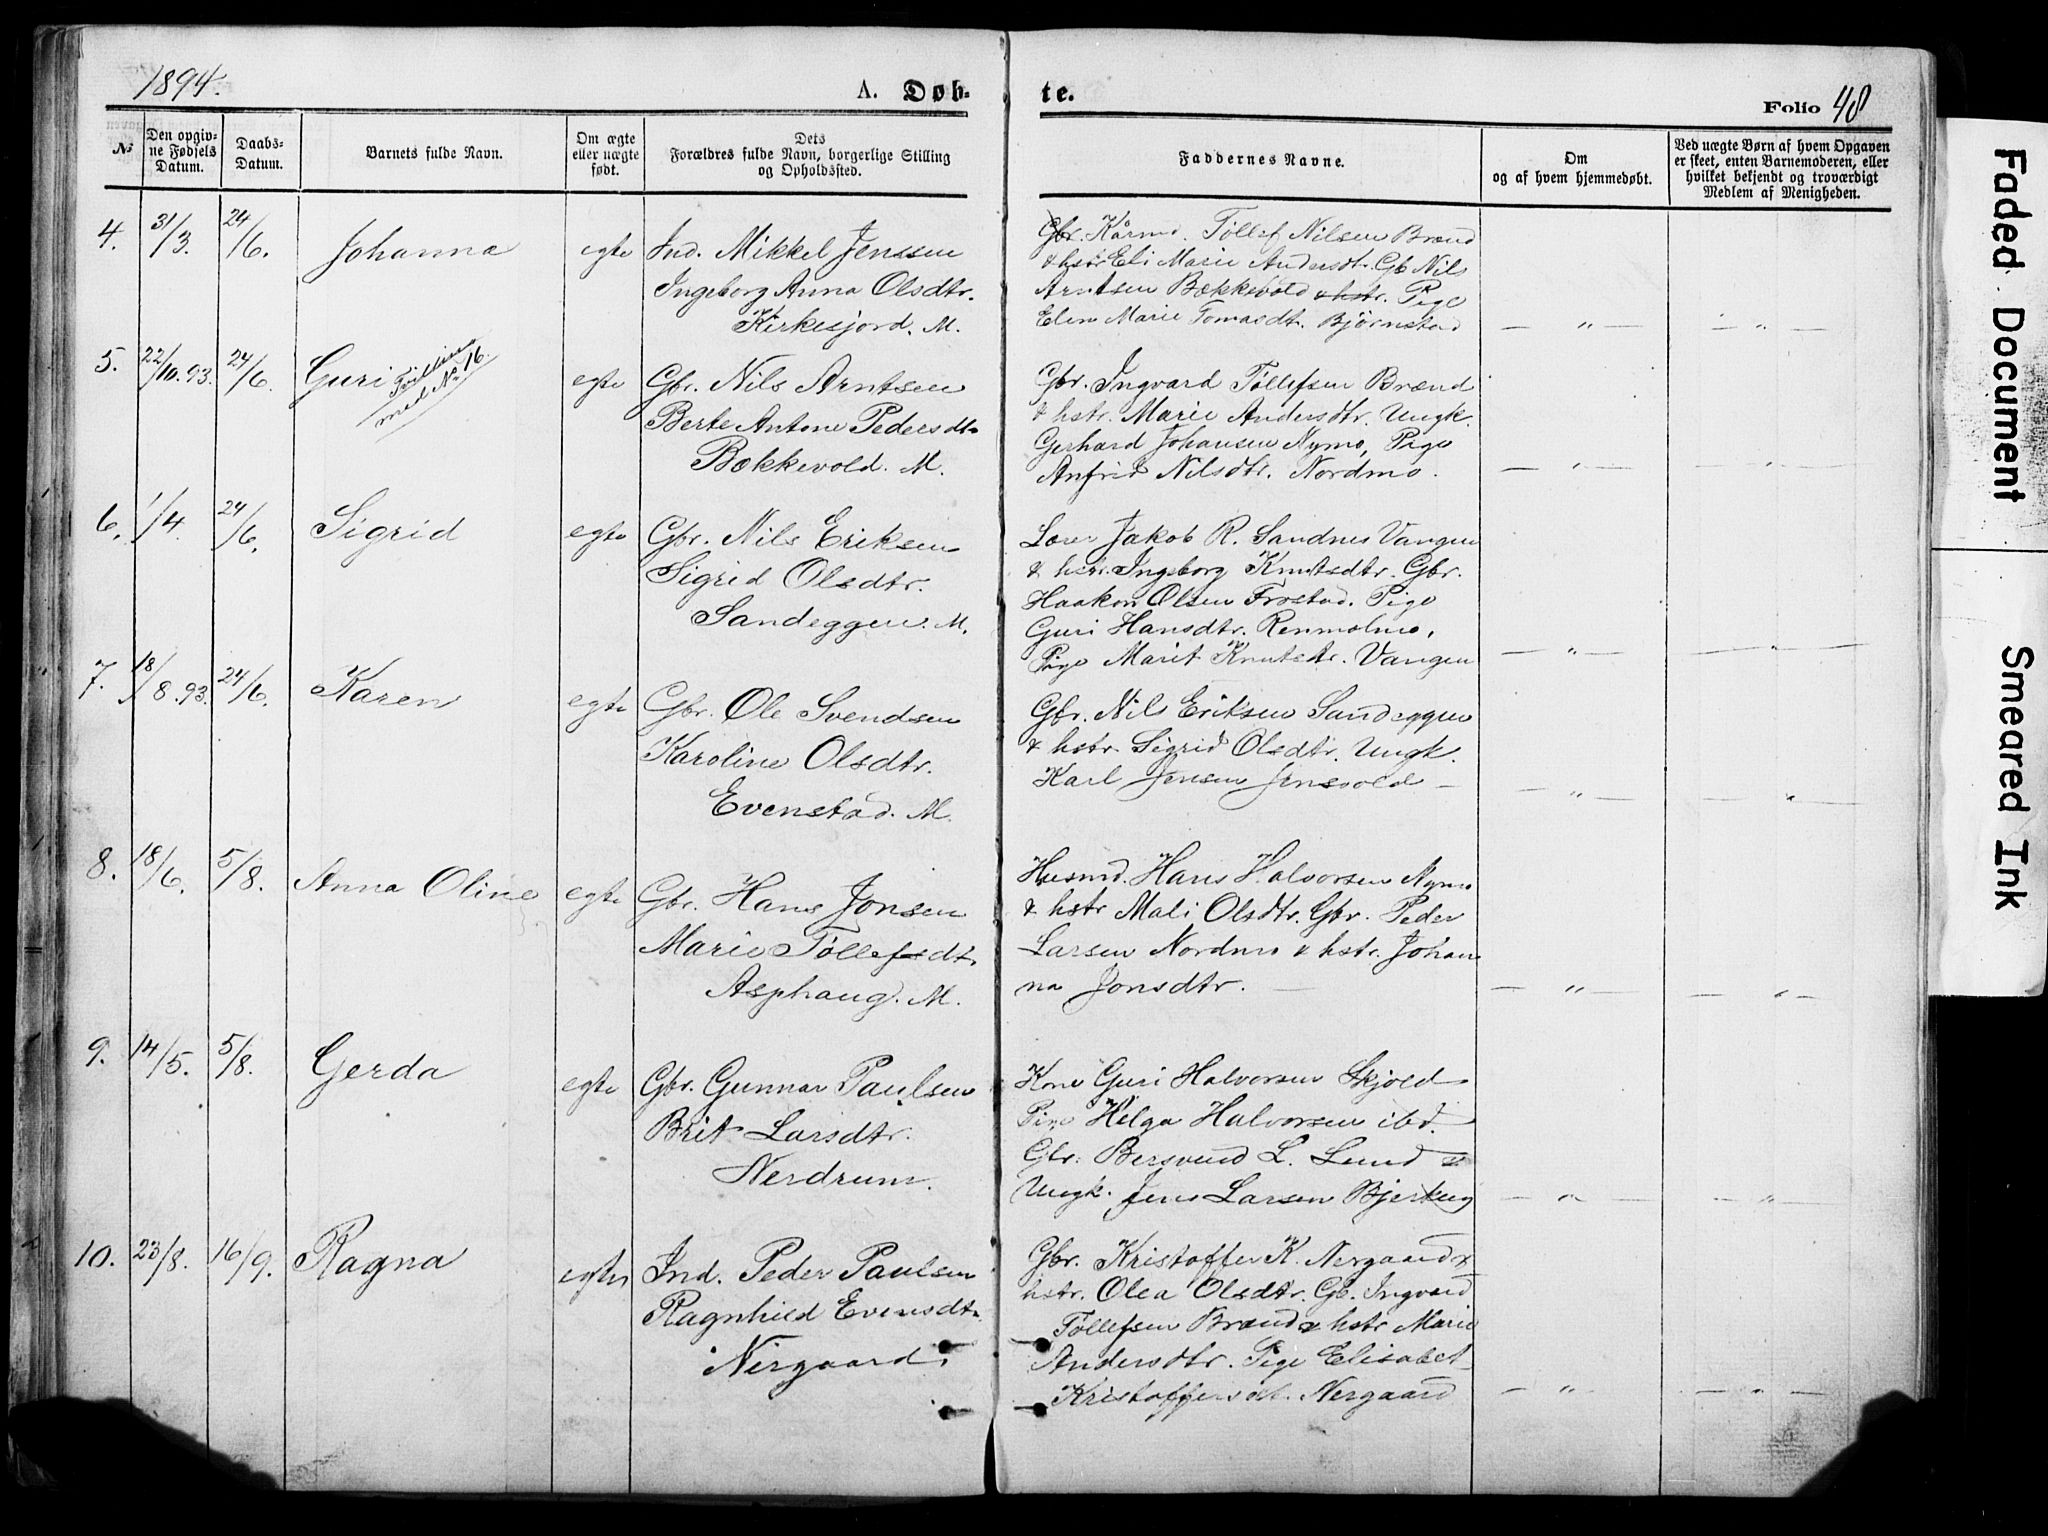 1894.
A. Døb-
te.
Folio 48
№
Den opgiv-
ne Fødsels
Datum.
Daabs-
Datum.
Barnets fulde Navn.
Om ægte
eller uægte
født.
Dets
Forældres fulde Navn, borgerlige Stilling
og Opholdssted.
Faddernes Navne.
Om
og af hvem hjemmedøbt.
Ved uægte Børn af hvem Opgaven
er skeet, enten Barnemoderen, eller
hvilket bekjendt og troværdigt
Medlem af Menigheden.
4. 31/3. 24/6. Johanna egte
Ind. Mikkel Jenssen
Ingeborg Anna Olsdtr.
Kirkesjord. M.
Gbr. Kårmd. Tøllef Nilsen Brænd
& hstr Eli Marie Andersdtr. Gb Nils
Arntsen Bækkevold & hstr. Pige
Elen Marie Tomasdtr. Bjørnstad — " — — " —
5. 22/10.93. 24/6. Guri Tvilling
med No. 16. egte
Gbr. Nils Arntsen
Berte Antone Pedersdtr
Bækkevold. M.
Gbr. Ingvard Tøllefsen Brænd
& hstr. Marie Andersdtr. Ungk.
Gerhard Johansen Nymo, Pige
Anfrid Nilsdtr. Nordmo. — " — — " —
6. 1/4. 24/6. Sigrid egte
Gbr. Nils Eriksen
Sigrid Olsdtr.
Sandeggen. M.
Lærer Jakob R. Sandnes Vangen
& hstr. Ingeborg Knutsdtr. Gbr.
Haakon Olsen Frostad. Pige
Guri Hansdtr. Renmolmo,
Pige Marit Knutsdtr. Vangen — " — — " —
7. 18/8.93. 24/6. Karen egte
Gbr. Ole Svendsen
Karoline Olsdtr.
Evenstad. M.
Gbr. Nils Eriksen Sandeggen
& hstr. Sigrid Olsdtr. Ungk.
Karl Jensen Jensvold — — " — — " —
8. 18/6. 5/8. Anna Oline egte
Gbr. Hans Jonsen
Marie Tøllefsdtr
Asphaug. M.
Husmd. Hans Halvorsen Nymo
& hstr Mali Olsdtr. Gbr. Peder
Larsen Nordmo & hstr. Johan
na Jonsdtr. — — " — — " —
9. 14/5. 5/8. Gerda egte
Gbr. Gunnar Paulsen
Brit Larsdtr.
Nerdrum.
Kone Guri Halvorsen Skjold
Pige Helga Halvorsen ibd.
Gbr. Bersvend L. Lund &
Ungk. Jens Larsen Bjerkeng — " — — " —
10. 23/8. 16/9. Ragna egte
Ind. Peder Paulsen
Ragnhild Evensdtr
Nergaard
Gbr. Kristoffer K. Nergaard &
hstr. Olea Olsdtr. Gb. Ingvard
Tøllefsen Brænd & hstr Marie
Andersdtr. Pige Elisabet
Kristoffersdt. Nergaard — " — — " —
Faded Document
Smeared Ink